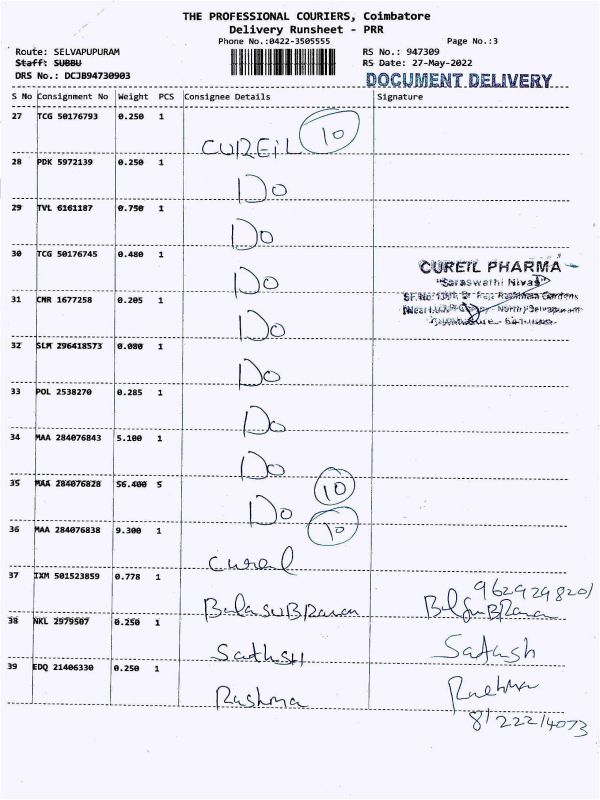 THE PROFESSIONAL COURIERS, Coimbatore
Delivery Runsheet - PRR
Phone No.:0422-3505555 Page No.:3
Route: SELVAPUPURAM RS No.: 947309
Staff: SUBBU RS Date: 27-May-2022
DRS No.: DCJB94730903 DOCUMENT DELIVERY
S No Consignment No Weight PCS Consignee Details Signature
27 TCG 50176793 0.250 1
CUREIL 10
28 PDK 5972139 0.250 1
Do
29 TVL 6161187 0.750 1
Do
30 TCG 50176745 0.480 1
Do
CUREIL PHARMA
"Saraswathi Nivas"
31 CNR 1677258 0.205 1
Do
32 SLM 296418573 0.080 1
Do
33 POL 2538270 0.285 1
Do
34 MAA 284076843 5.100 1
Do
35 MAA 284076828 56.400 5
10
Do
36 MAA 284076838 9.300 1
10
Cureil
37 IXM 501523859 0.778 1
9629298201
BalasuBRanan
38 NKL 2979507 0.250 1
Sathish Satish
39 EDQ 21406330 0.250 1
Rashma Rashma